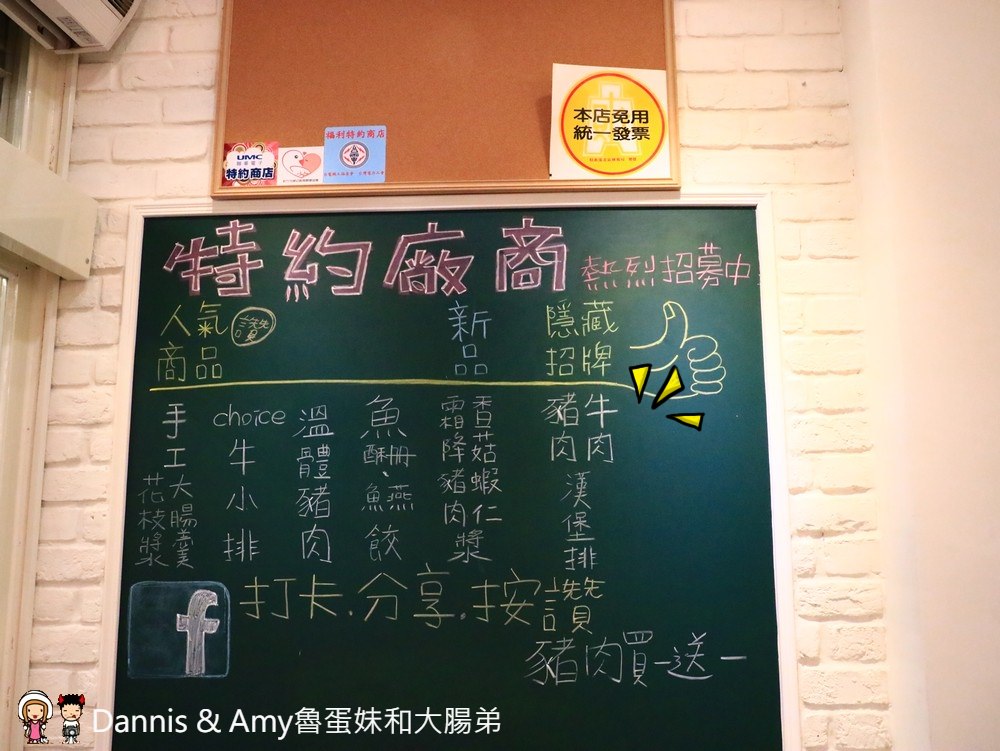 本店免用
統一發票
福利特約商店
UMC
特約商店
特約廠商 熱烈招募中
人氣商品 讚
新品
隱藏招牌
手工花枝漿 大腸養
choice牛小排
溫體豬肉
魚酥冊、魚燕餃
霜降豬肉漿 香菇蝦仁
豬肉 牛肉 漢堡排
f
打卡.分享.按讚
豬肉買一送一
Dannis & Amy魯蛋妹和大腸弟